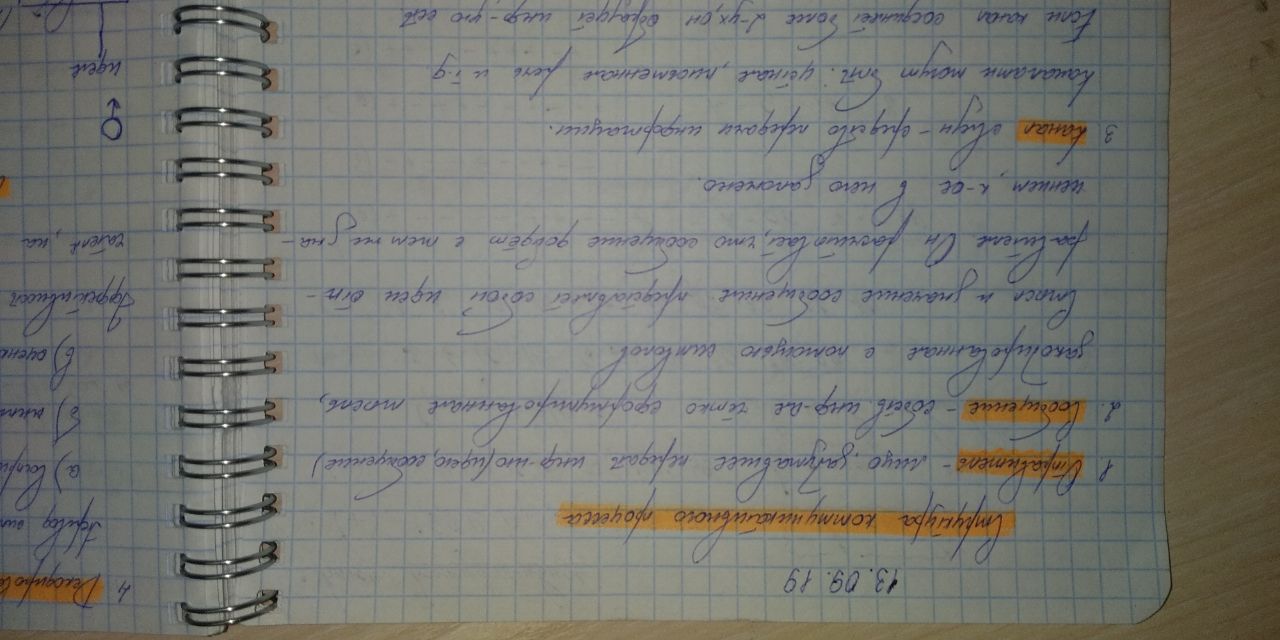 13.09.19
Структура коммуникативного процесса
1 Отправитель – лицо, задумавшее передать инф-ию (идею, сообщение)
2. Сообщение – собств. инф-ия чётко сформулированная мысль,
закодированная с помощью символов.
Смысл и значение сообщения представляет собой идеи отп-
равителя Он рассчитывает, что сообщение дойдёт с тем же зна-
чением, к-ое в него заложено.
3 Канал связи – средство передачи информации.
Каналами могут быть: устная, письменная речь и т.д
Если канал соединяет более 2-ух, он образует инф-ую сеть
4
а)
б)
в) оцени
идея